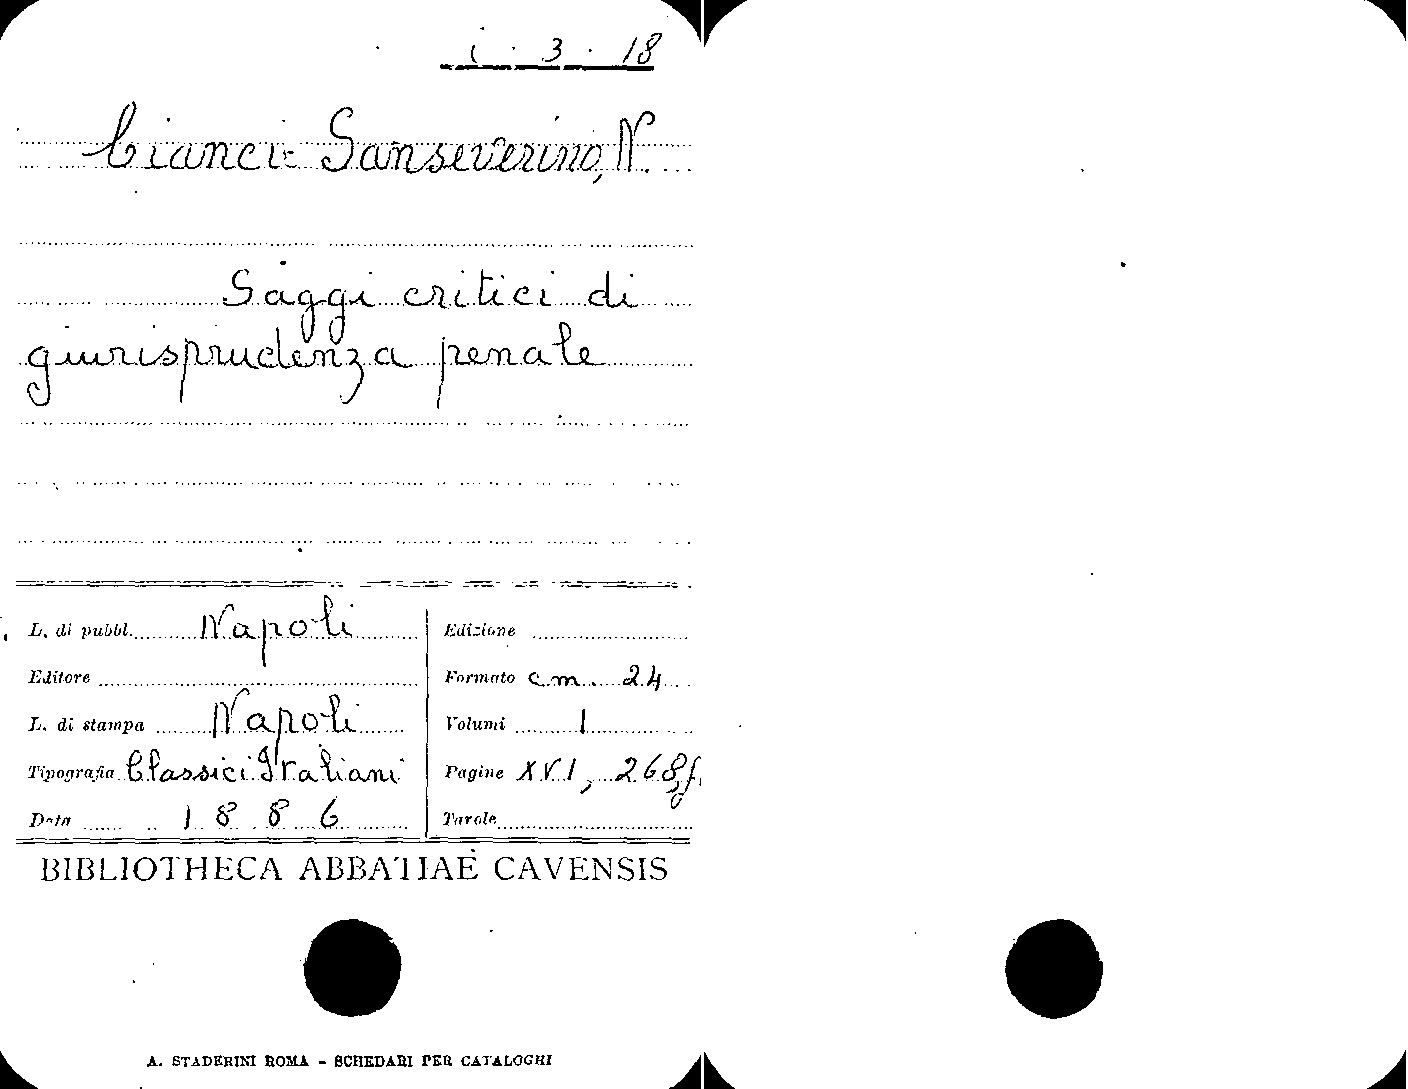 i . 3 . 18
Cianci-Sanseverino, N.
Saggi critici di
giurisprudenza penale
L. di pubbl. Napoli
Editore
L. di stampa Napoli
Tipografia Classici Italiani
Data 1886
Edizione
Formato cm. 24
Volumi 1
Pagine XVI, 268,
Tavole
BIBLIOTHECA ABBATIAE CAVENSIS
A. STADERINI ROMA - SCHEDARI PER CATALOGHI